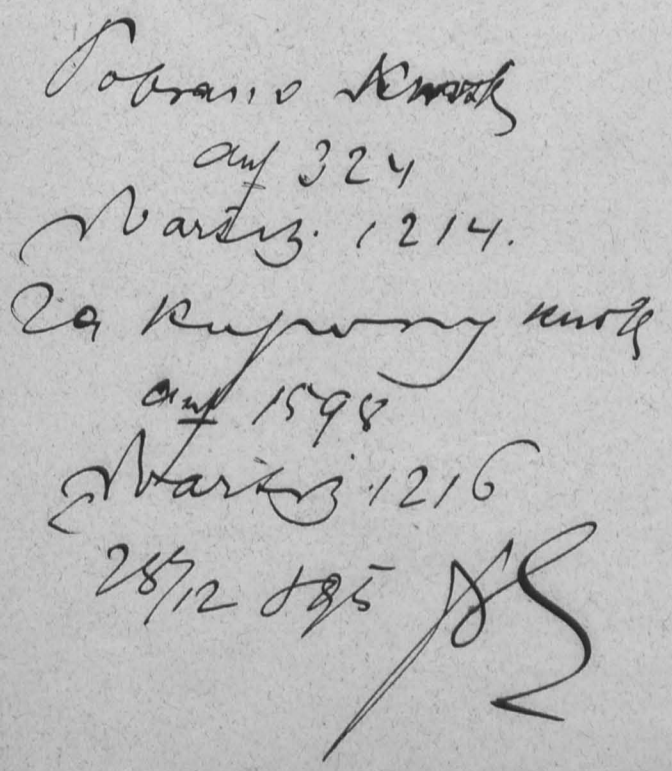 Pobrano kwotę
auf 324
Wartsch. 1214.
Za kupony kwotę
auf 1598
Wartsch. 1216
28/12 895